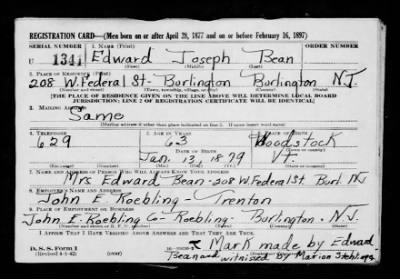 REGISTRATION CARD—(Men born on or after April 28, 1877 and on or before February 16, 1897)
SERIAL NUMBER 1. NAME (Print)
U 1344 Edward Joseph Bean
(First) (Middle) (Last)
2. PLACE OF RESIDENCE (Print)
208 W. Federal St- Burlington Burlington N.J.
(Number and street) (Town, township, village, or city) (County) (State)
[THE PLACE OF RESIDENCE GIVEN ON THE LINE ABOVE WILL DETERMINE LOCAL BOARD
JURISDICTION; LINE 2 OF REGISTRATION CERTIFICATE WILL BE IDENTICAL]
3. MAILING ADDRESS
Same
[Mailing address if other than place indicated on line 2. If same insert word same]
4. TELEPHONE 5. AGE IN YEARS 6. PLACE OF BIRTH
629 63 Woodstock
DATE OF BIRTH
Jan. 13 1879 Vt.
(Exchange) (Number) (Mo.) (Day) (Yr.) (State or country)
7. NAME AND ADDRESS OF PERSON WHO WILL ALWAYS KNOW YOUR ADDRESS
Mrs Edward Bean-208 W. Federal St. Burl. NJ
8. EMPLOYER'S NAME AND ADDRESS
John E Roebling- Trenton
9. PLACE OF EMPLOYMENT OR BUSINESS
John E. Roebling Co-Roebling- Burlington. N.J.
(Number and street or R. F. D. number) (Town) (County) (State)
I AFFIRM THAT I HAVE VERIFIED ABOVE ANSWERS AND THAT THEY ARE TRUE.
D. S. S. Form 1 X Mark made by Edward
(Revised 4-1-42) (over) Bean and witnissed by Marion